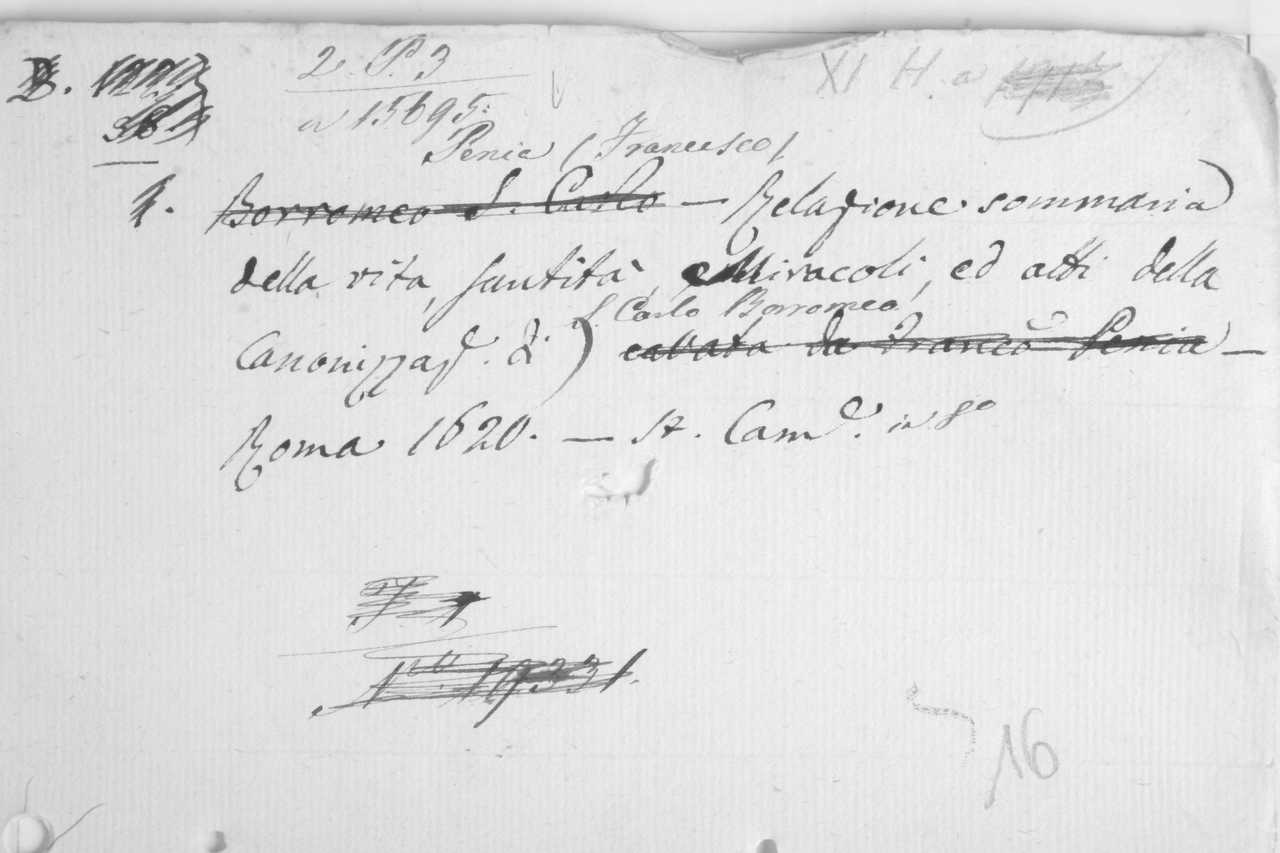 2. P. 3
XI H. a
a 15695.
Penia (Francesco)
1. Borromeo S. Carlo — Relazione sommaria
della vita, santità, Miracoli, ed atti della
S. Carlo Borromeo
Canonizzaz.e di) cavata da Franc.o Penia —
Roma 1620. — st. Cam.e in 8º
16